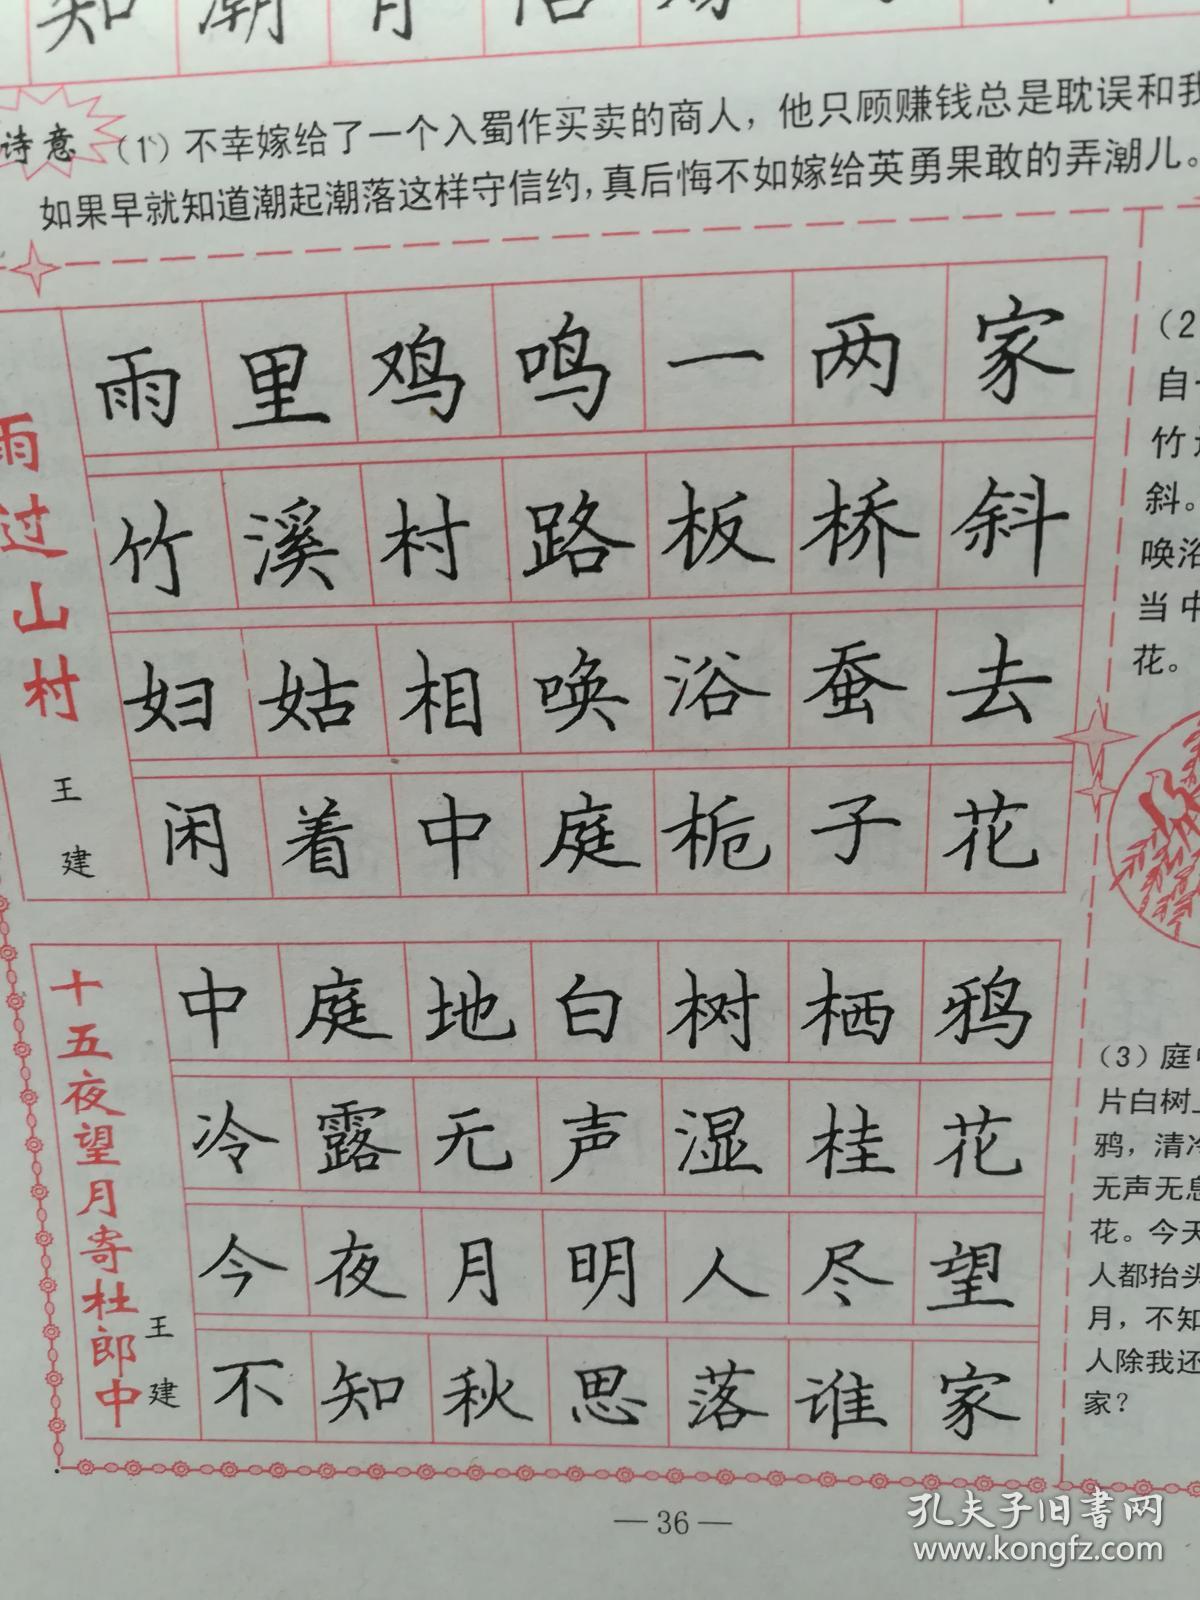 知潮有信
诗意
（1）不幸嫁给了一个入蜀作买卖的商人，他只顾赚钱总是耽误和我
如果早就知道潮起潮落这样守信约，真后悔不如嫁给英勇果敢的弄潮儿。
雨过山村
王建
雨里鸡鸣一两家
竹溪村路板桥斜
妇姑相唤浴蚕去
闲着中庭栀子花
（2
自
竹
斜。
唤浴
当中
花。
十五夜望月寄杜郎中
王建
中庭地白树栖鸦
冷露无声湿桂花
今夜月明人尽望
不知秋思落谁家
（3）庭中
片白树上
鸦，清冷
无声无息
花。今天
人都抬头
月，不知
人除我还
家？
—36—
孔夫子旧书网
www.kongfz.com